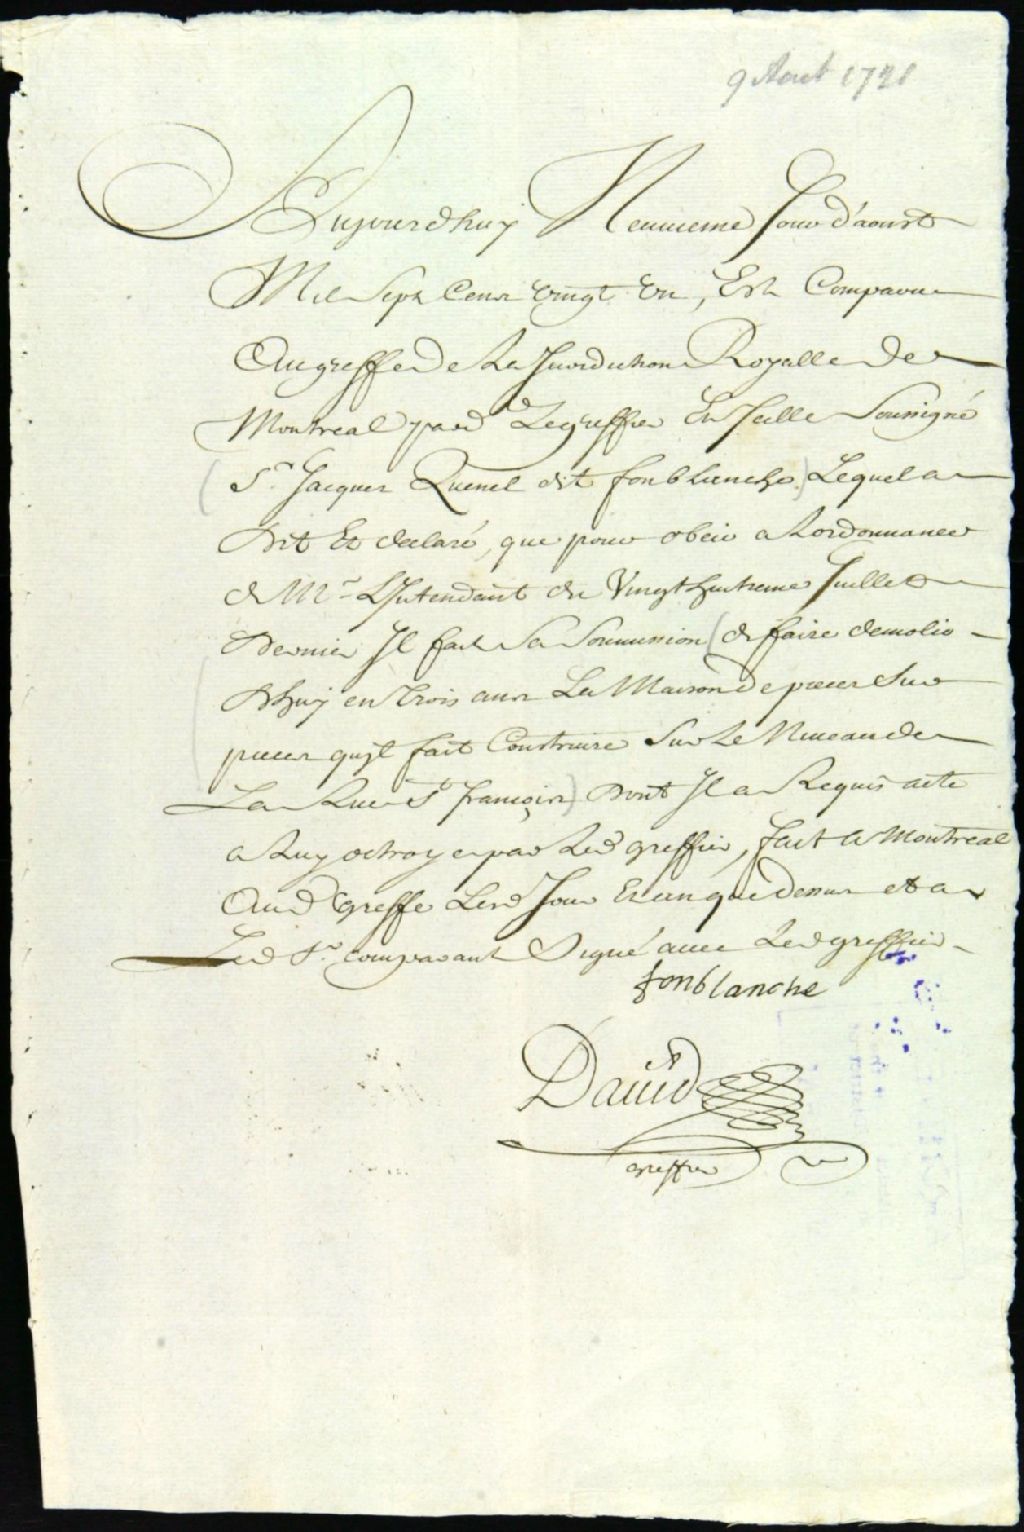 9 Aout 1721
Aujourdhuy Neuuieme Jour d'aoust
Mil Sept Cent Vingt Un, Est Comparu
Au greffe de La Jurisdiction Royalle de
Montreal pard Le greffier En Icelle Soussigné
Sr. Jacques Quenel dit fonblanche, Lequel a
Dit Et declaré, que pour obeir a Lordonnance
de Mr. L'Intendant du Vingthuitieme Juillet
Dernier Il fait Sa Soumission de faire demolir
Dhuy en trois ans La Maison de pieces Sur
pieces quil fait Construire Sur Le Niueau de
La Rue St. françois Dont Il a Requis acte
a Luy octroyé par Led greffier, fait a Montreal
Aud greffe Lesd Jour Et an que dessus et a
Led Sr. comparant Signé auec Led greffier
fonblanche
Dauid
greffier